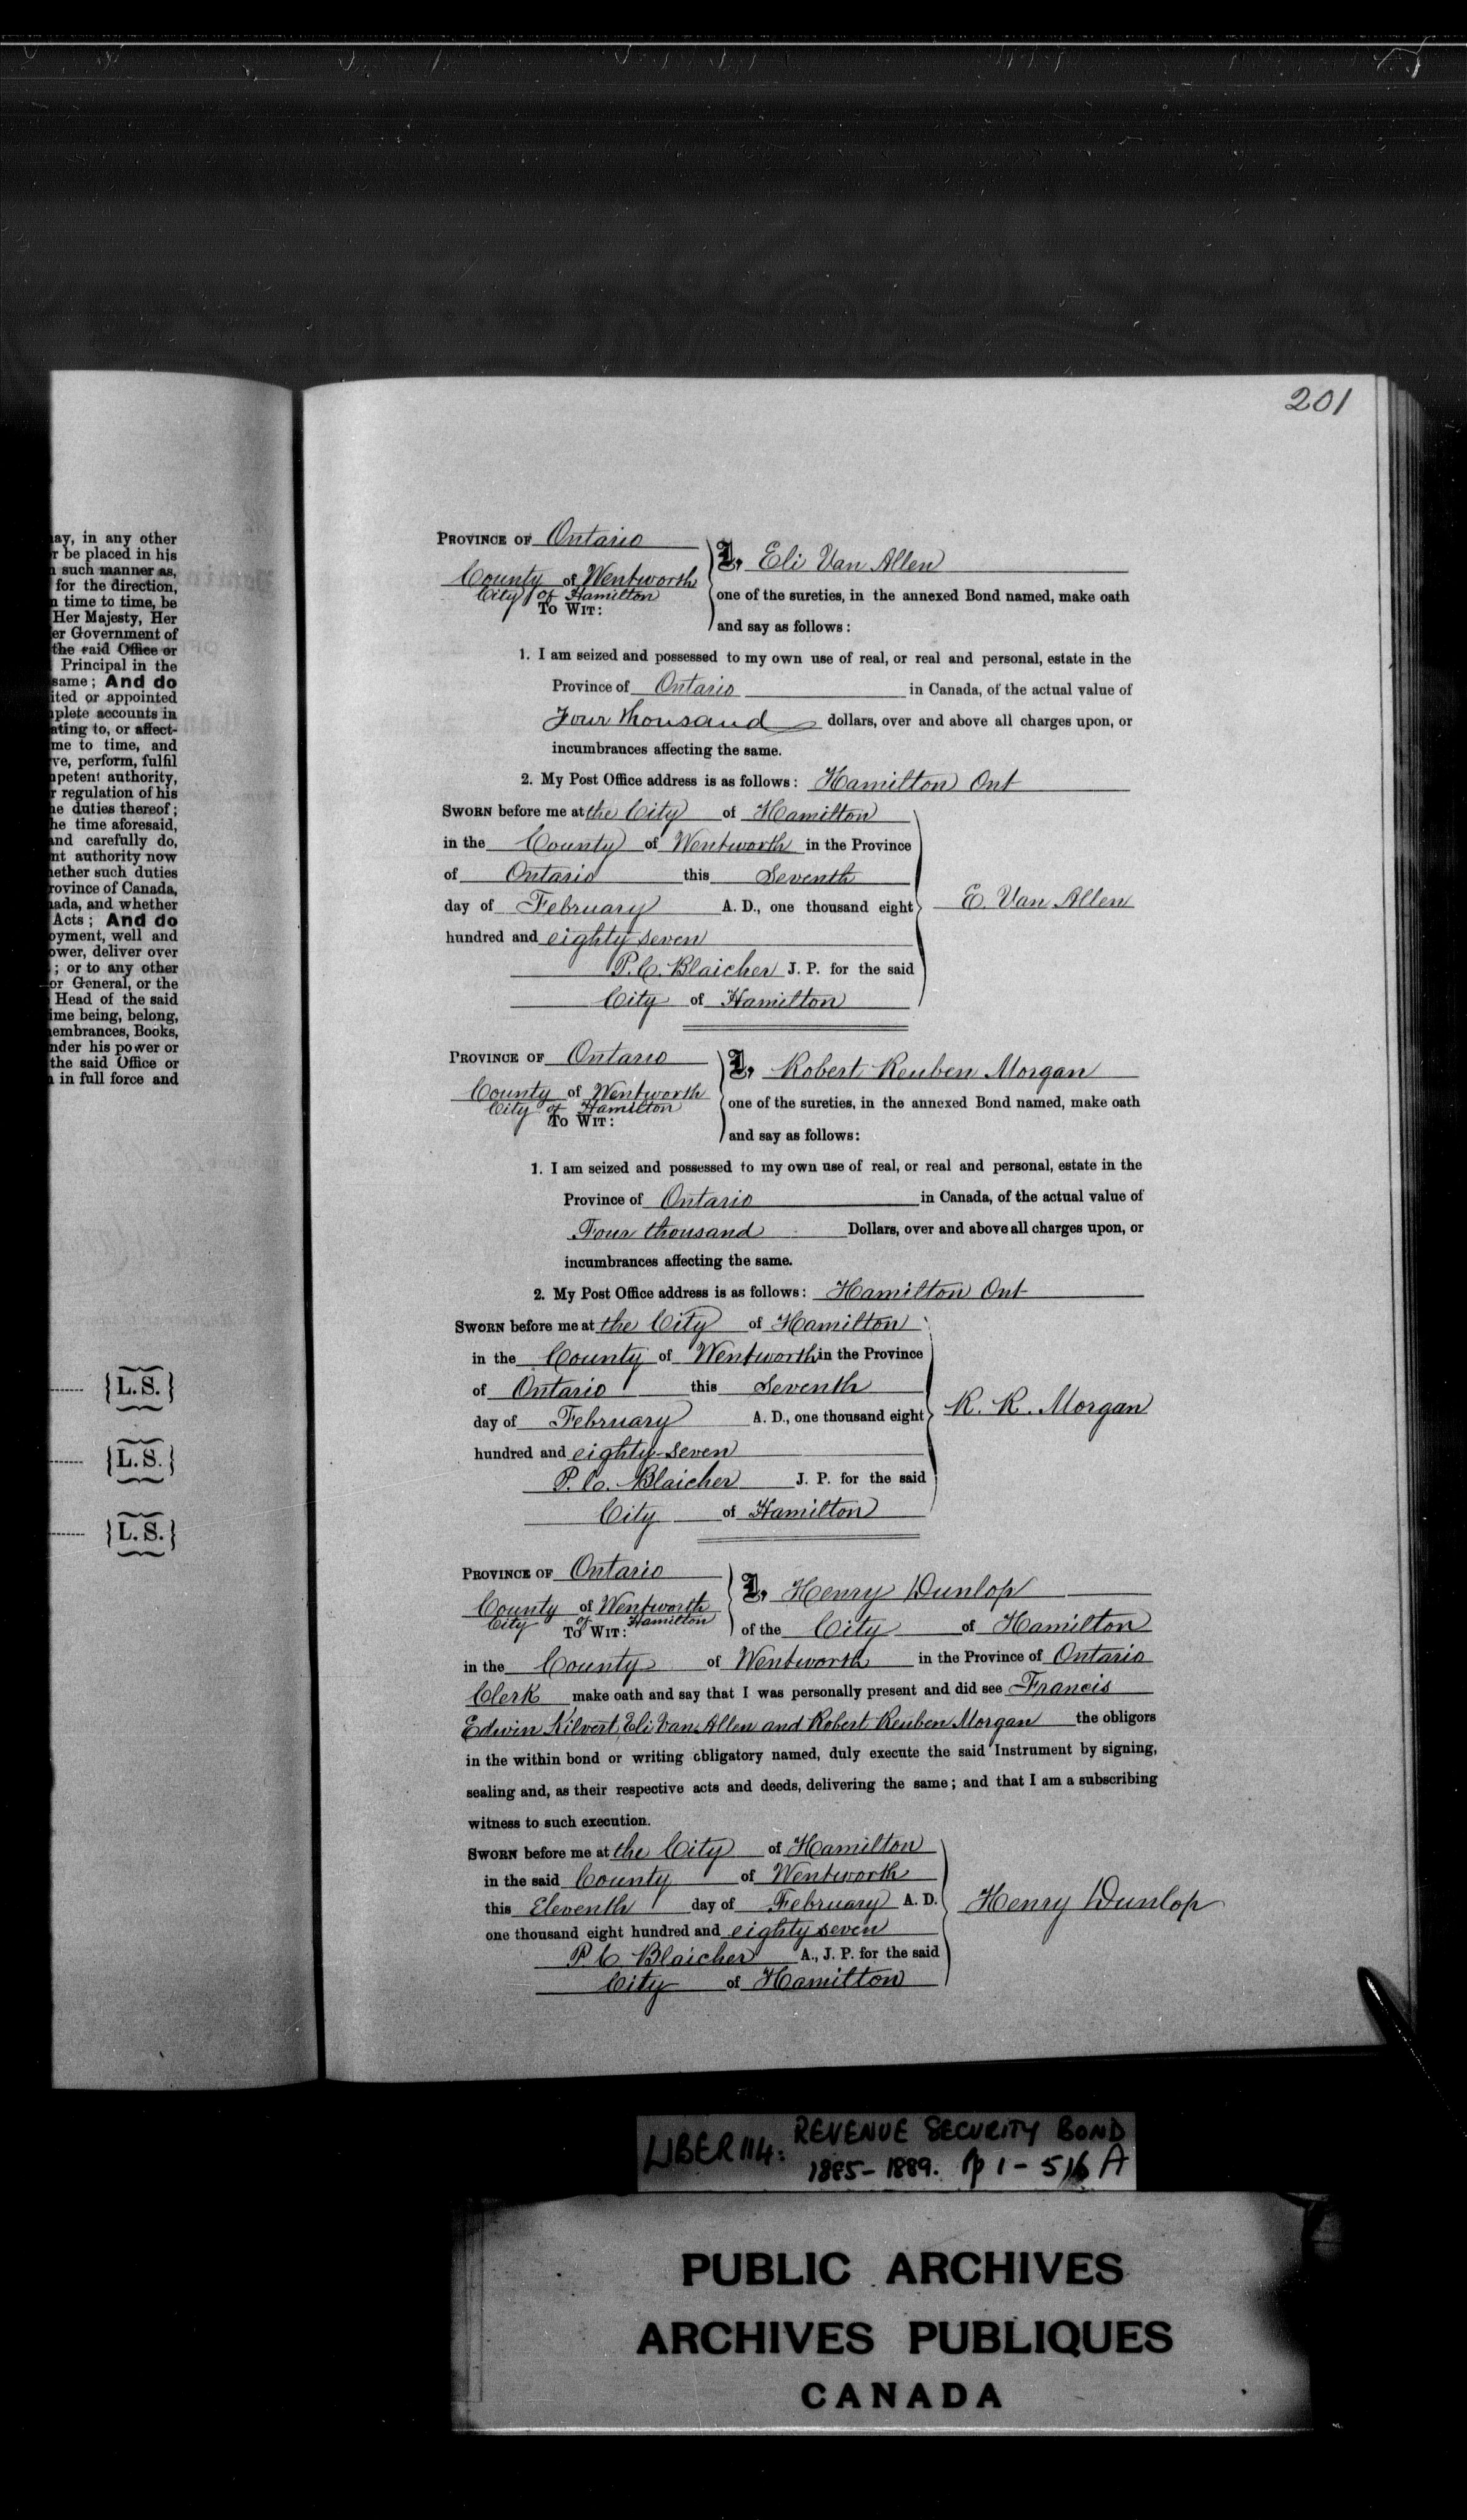 ay, in any other
r be placed in his
such manner as,
for the direction,
time to time, be
Her Majesty, Her
er Government of
the said Office or
Principal in the
same; And do
ited or appointed
plete accounts in
ating to, or affect-
me to time, and
ve, perform, fulfil
petent authority,
r regulation of his
e duties thereof;
he time aforesaid,
and carefully do,
nt authority now
ether such duties
rovince of Canada,
ada, and whether
Acts; And do
oyment, well and
ower, deliver over
; or to any other
or General, or the
Head of the said
ime being, belong,
embrances, Books,
nder his power or
the said Office or
in full force and
{L. S.}
{L. S.}
{L. S.}
201
PROVINCE OF Ontario
I, Eli Van Allen
County of Wentworth
City of Hamilton
one of the sureties, in the annexed Bond named, make oath
TO WIT:
and say as follows:
1. I am seized and possessed to my own use of real, or real and personal, estate in the
Province of Ontario in Canada, of the actual value of
Four thousand dollars, over and above all charges upon, or
incumbrances affecting the same.
2. My Post Office address is as follows: Hamilton Ont
SWORN before me at the City of Hamilton
in the County of Wentworth in the Province
of Ontario this Seventh
day of February A. D., one thousand eight
E. Van Allen
hundred and eighty seven
P. C. Blaicher J. P. for the said
City of Hamilton
PROVINCE OF Ontario
I, Robert Reuben Morgan
County of Wentworth
City of Hamilton
one of the sureties, in the annexed Bond named, make oath
TO WIT:
and say as follows:
1. I am seized and possessed to my own use of real, or real and personal, estate in the
Province of Ontario in Canada, of the actual value of
Four thousand Dollars, over and above all charges upon, or
incumbrances affecting the same.
2. My Post Office address is as follows: Hamilton Ont
SWORN before me at the City of Hamilton
in the County of Wentworth in the Province
of Ontario this Seventh
day of February A. D., one thousand eight
R. R. Morgan
hundred and eighty-seven
P. C. Blaicher J. P. for the said
City of Hamilton
PROVINCE OF Ontario
I, Henry Dunlop
County of Wentworth
City of Hamilton
TO WIT:
of the City of Hamilton
in the County of Wentworth in the Province of Ontario
Clerk make oath and say that I was personally present and did see Francis
Edwin Kilvert, Eli Van Allen and Robert Reuben Morgan the obligors
in the within bond or writing obligatory named, duly execute the said Instrument by signing,
sealing and, as their respective acts and deeds, delivering the same; and that I am a subscribing
witness to such execution.
SWORN before me at the City of Hamilton
in the said County of Wentworth
this Eleventh day of February A. D.
Henry Dunlop
one thousand eight hundred and eighty seven
P C Blaicher A., J. P. for the said
City of Hamilton
LIBER 114: REVENUE SECURITY BOND
1885-1889. pp 1-516 A
PUBLIC ARCHIVES
ARCHIVES PUBLIQUES
CANADA